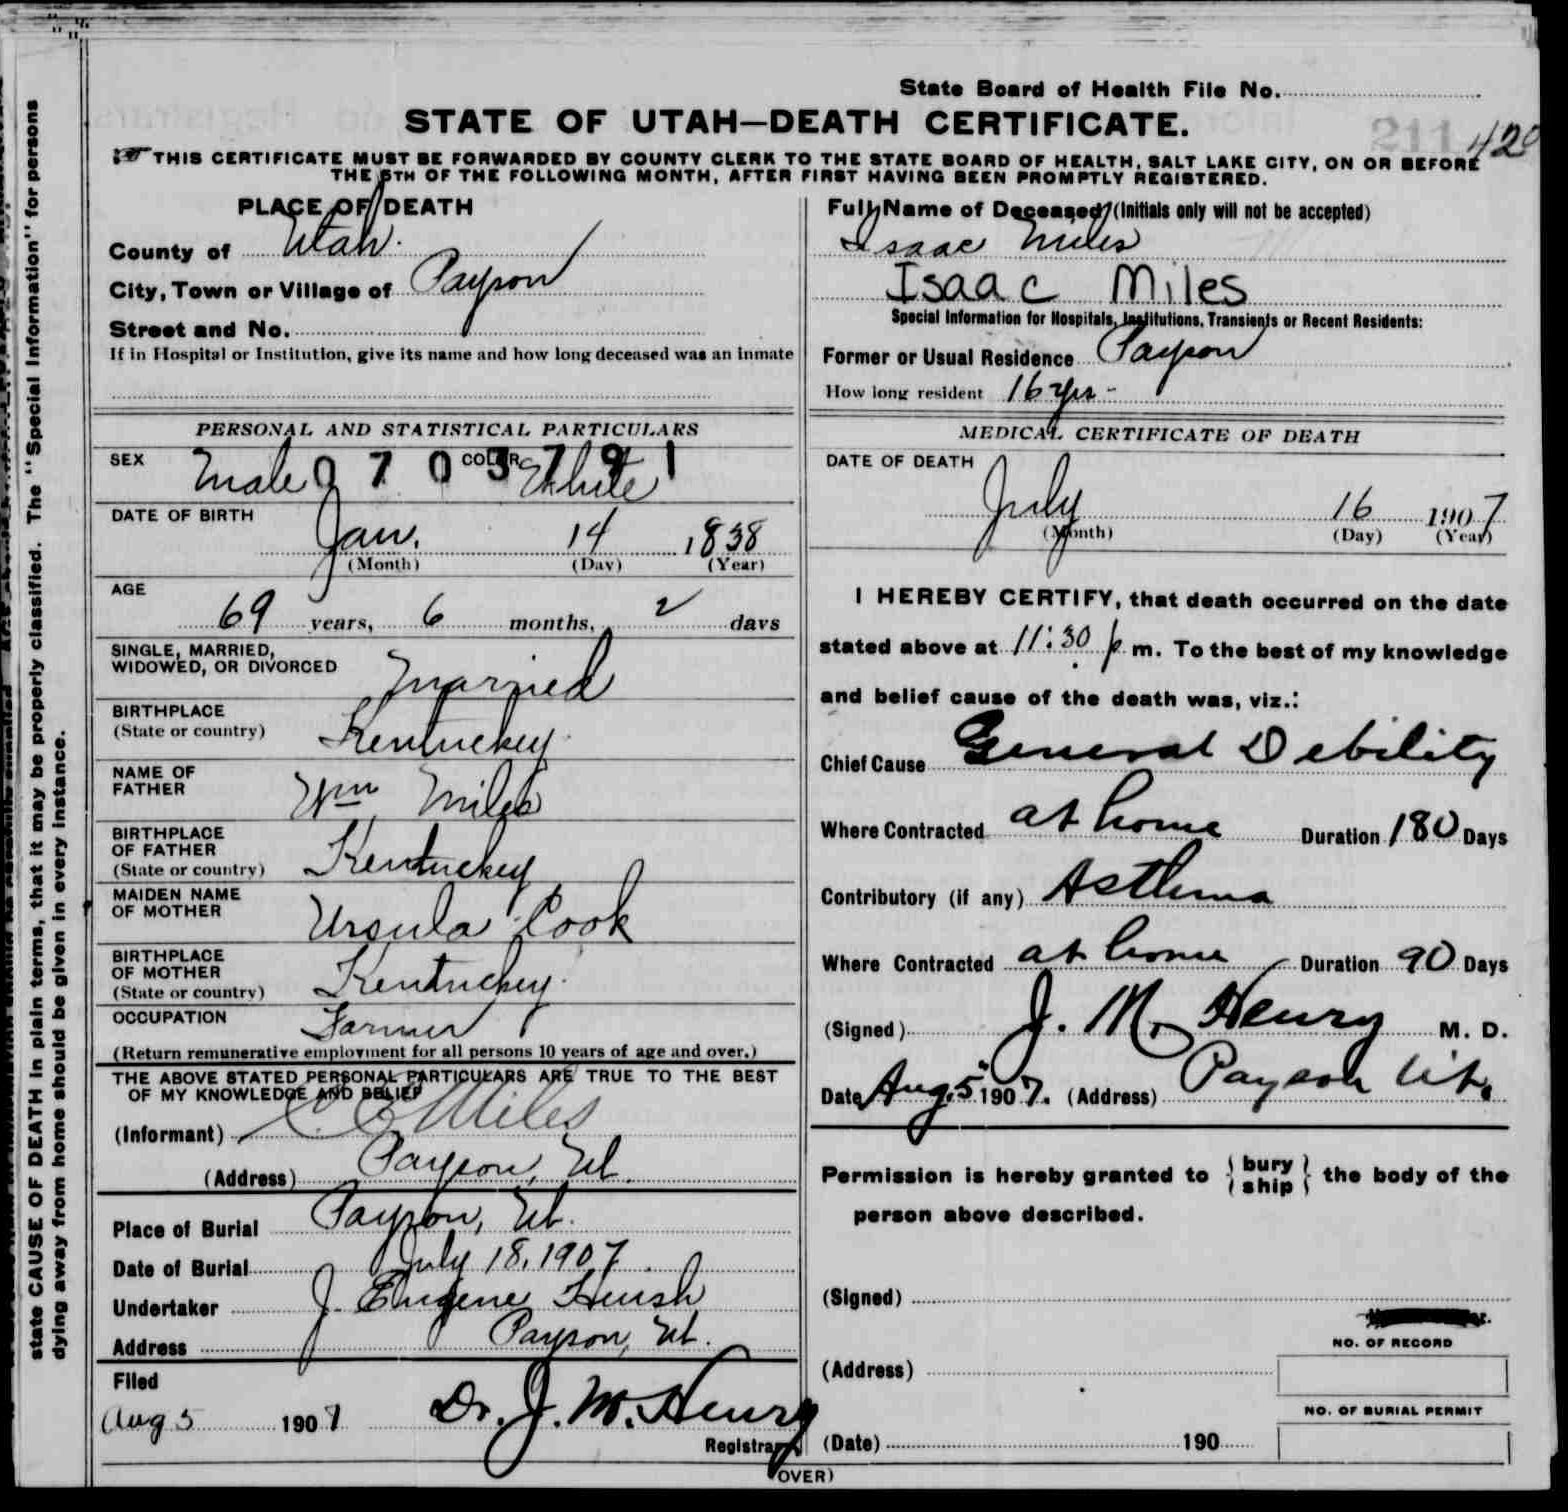 State Board of Health File No.
STATE OF UTAH—DEATH CERTIFICATE.
211 420
THIS CERTIFICATE MUST BE FORWARDED BY COUNTY CLERK TO THE STATE BOARD OF HEALTH, SALT LAKE CITY, ON OR BEFORE
THE 5TH OF THE FOLLOWING MONTH, AFTER FIRST HAVING BEEN PROMPTLY REGISTERED.
state CAUSE OF DEATH in plain terms, that it may be properly classified. The "Special Information" for persons
dying away from home should be given in every instance.
PLACE OF DEATH
County of Utah.
City, Town or Village of Payson
Street and No.
If in Hospital or Institution, give its name and how long deceased was an inmate
PERSONAL AND STATISTICAL PARTICULARS
SEX Male COLOR White
0 7 0 3 7 9 1
DATE OF BIRTH
Jan. 14 1838
(Month) (Day) (Year)
AGE
69 years, 6 months, 2 days
SINGLE, MARRIED,
WIDOWED, OR DIVORCED Married
BIRTHPLACE
(State or country) Kentucky.
NAME OF
FATHER Wm Miles
BIRTHPLACE
OF FATHER
(State or country) Kentuckey
MAIDEN NAME
OF MOTHER Ursula Cook
BIRTHPLACE
OF MOTHER
(State or country) Kentuckey.
OCCUPATION Farmer
(Return remunerative employment for all persons 10 years of age and over.)
THE ABOVE STATED PERSONAL PARTICULARS ARE TRUE TO THE BEST
OF MY KNOWLEDGE AND BELIEF
(Informant) C C Miles
(Address) Payson, Ut.
Place of Burial Payson, Ut.
Date of Burial July 18, 1907.
Undertaker J. Eugene Huish
Address Payson, Ut.
Filed
Aug 5 1907 Dr. J. M. Henry
Registrar
Full Name of Deceased (Initials only will not be accepted)
Isaac Miles
Isaac Miles
Special Information for Hospitals, Institutions, Transients or Recent Residents:
Former or Usual Residence Payson
How long resident 16 yrs -
MEDICAL CERTIFICATE OF DEATH
DATE OF DEATH
July 16 1907
(Month) (Day) (Year)
I HEREBY CERTIFY, that death occurred on the date
stated above at 11:30 p m. To the best of my knowledge
and belief cause of the death was, viz.:
Chief Cause General Debility
Where Contracted at home Duration 180 Days
Contributory (if any) Asthma
Where Contracted at home Duration 90 Days
(Signed) J. M. Henry M. D.
Date Aug. 5 1907. (Address) Payson Ut.
Permission is hereby granted to { bury ship } the body of the
person above described.
(Signed)
NO. OF RECORD
(Address)
NO. OF BURIAL PERMIT
(Date) 190
(OVER)